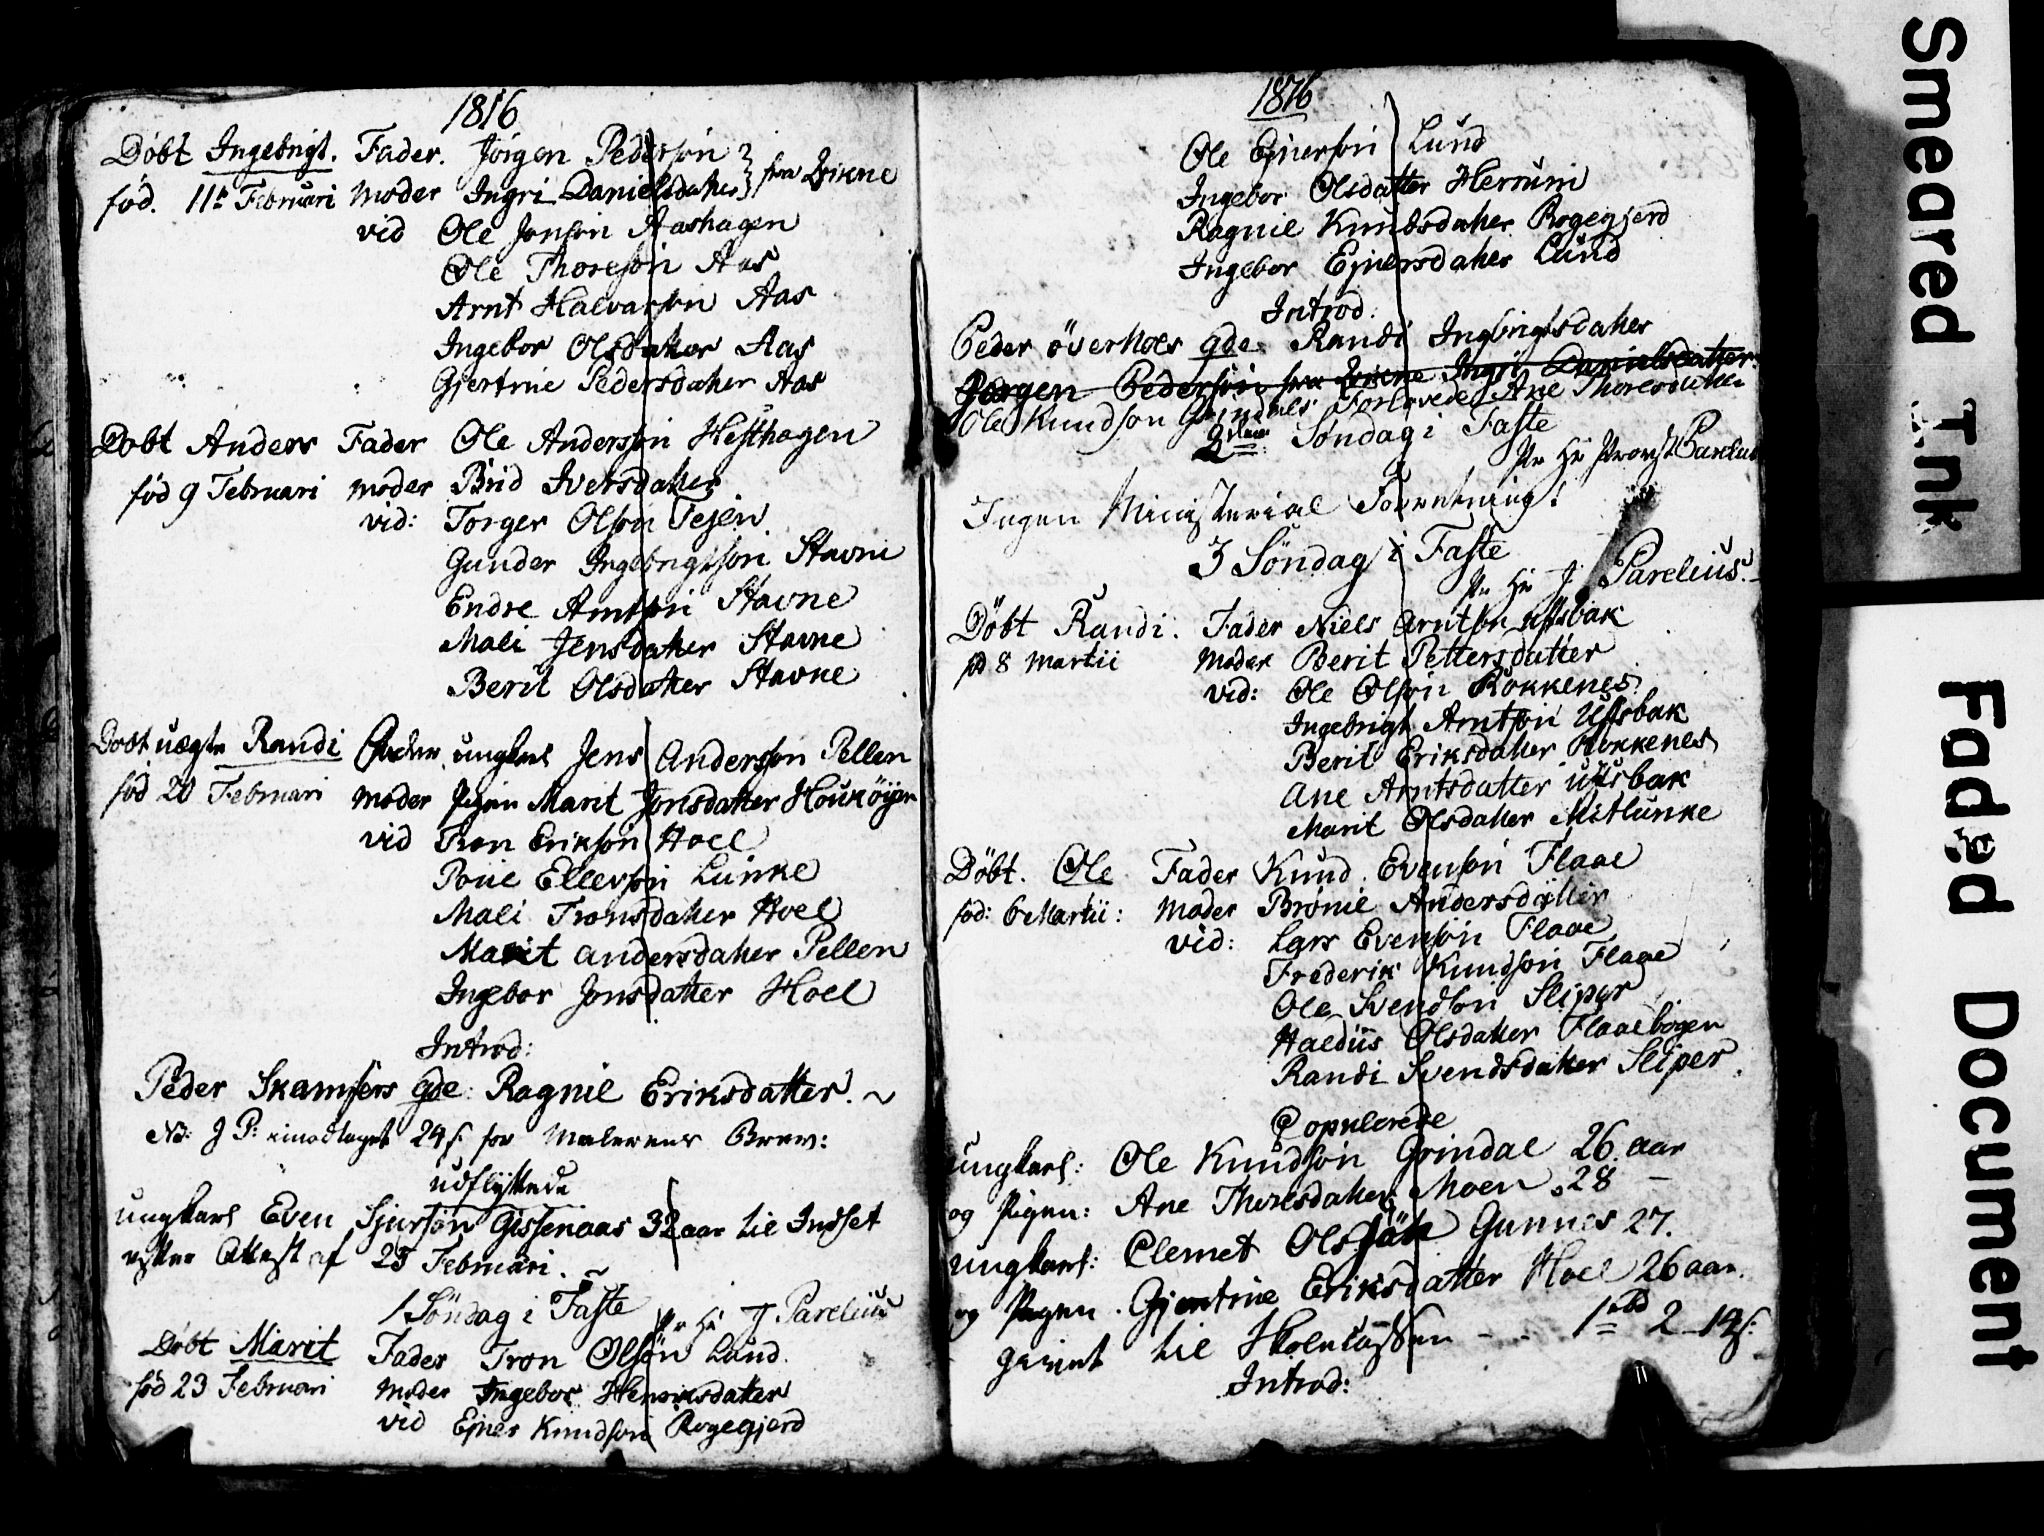 1816
Döbt Ingebrigt. Fader. Jörgen Pedersön
fød. 11te Februari Moder Ingri Danielsdatter
vid Ole Jonsön Aashagen
Ole Thoresön Aas
Arnt Halvarsön Aas
Ingebor Olsdatter Aas
Gjertrue Pedersdatter Aas
Döbt Anders Fader Ole Andersön Hesthagen
fød 9 Februari Moder Brid Iversdatter
vid: Torger Olsön Tejen
Gunder Ingebrigtsön Stavne
Endre Arntsön Stavne
Mali Jensdatter Stavne
Berit Olsdatter Stavne
Döbt uægte Randi Fader ungkarl Jens Andersson Pellen
fød 20 Februari Moder Pigen Marit Jonsdatter
vid Tron Erikson Hoel
Poul Ellevsön Lunke
Mali Tronsdatter Hoel
Marit Andersdatter Pellen
Ingebor Jonsdatter Hoel
Introd:
Peder Skamfers Qde: Ragnil Eriksdatter.
24 s: for
udflyttede
ungkarl Even Sjursön Gissenaas 32 aar til Indset
efter Attest af 25 Februari.
1 Söndag i Faste Pr Hr J Parelius
Döbt Marit Fader Tron Olsön Lund
fød 23 Februari Moder Ingebor Henriksdatter
vid Ejner Knudsön Rogegjerd
1816
Ole Ejnersön Lund
Ingebor Olsdatter Herrum
Ragnil Knudsdatter Rogegjerd
Ingebor Ejnersdatter Lund
Introd:
Peder överhoes Qde Randi Ingbrigtsdatter
Jørgen Pedersön fra Ingri Danielsdatter
Ole Knudsön Grindals Forlovede Ane Thoresdatter
2den Søndag i Faste
Pr Hr Provst Parelius
Ingen Ministerial Forretning!
3 Söndag i Faste
Pr Hr J Parelius.
Döbt Randi. Fader Niels Arntsön Uffsbak
fød 8 Martii Moder Berit Pettersdatter
vid: Ole Olsön Rokkenes
Ingebrigt Arntsön Uffsbak
Berit Eriksdatter Rokkenes
Ane Arntsdatter Uffsbak
Marit Olsdatter Mitlunke
Döbt. Ole Fader Knud Evensön Flaae
fød: 6 Martii: Moder Brønil Andersdatter
vid: Lars Evensön Flaae
Frederik Knudsön Flaae
Ole Svendsön Sliper
Haldiis Olsdatter Flaaebogen
Randi Svendsdatter Sliper.
Copulerede
ungkarl: Ole Knudsön Grindal 26 aar
og Pigen: Ane Thoresdatter Moen 28 –
ungkarl: Clemet Olsön Gunnes 27.
og Pigen. Gjertrue Eriksdatter Hoel 26 aar.
givet til Skolecassen – – 1 rbd 2 – 12 s:
Introd:
Smeared Ink
Faded Document